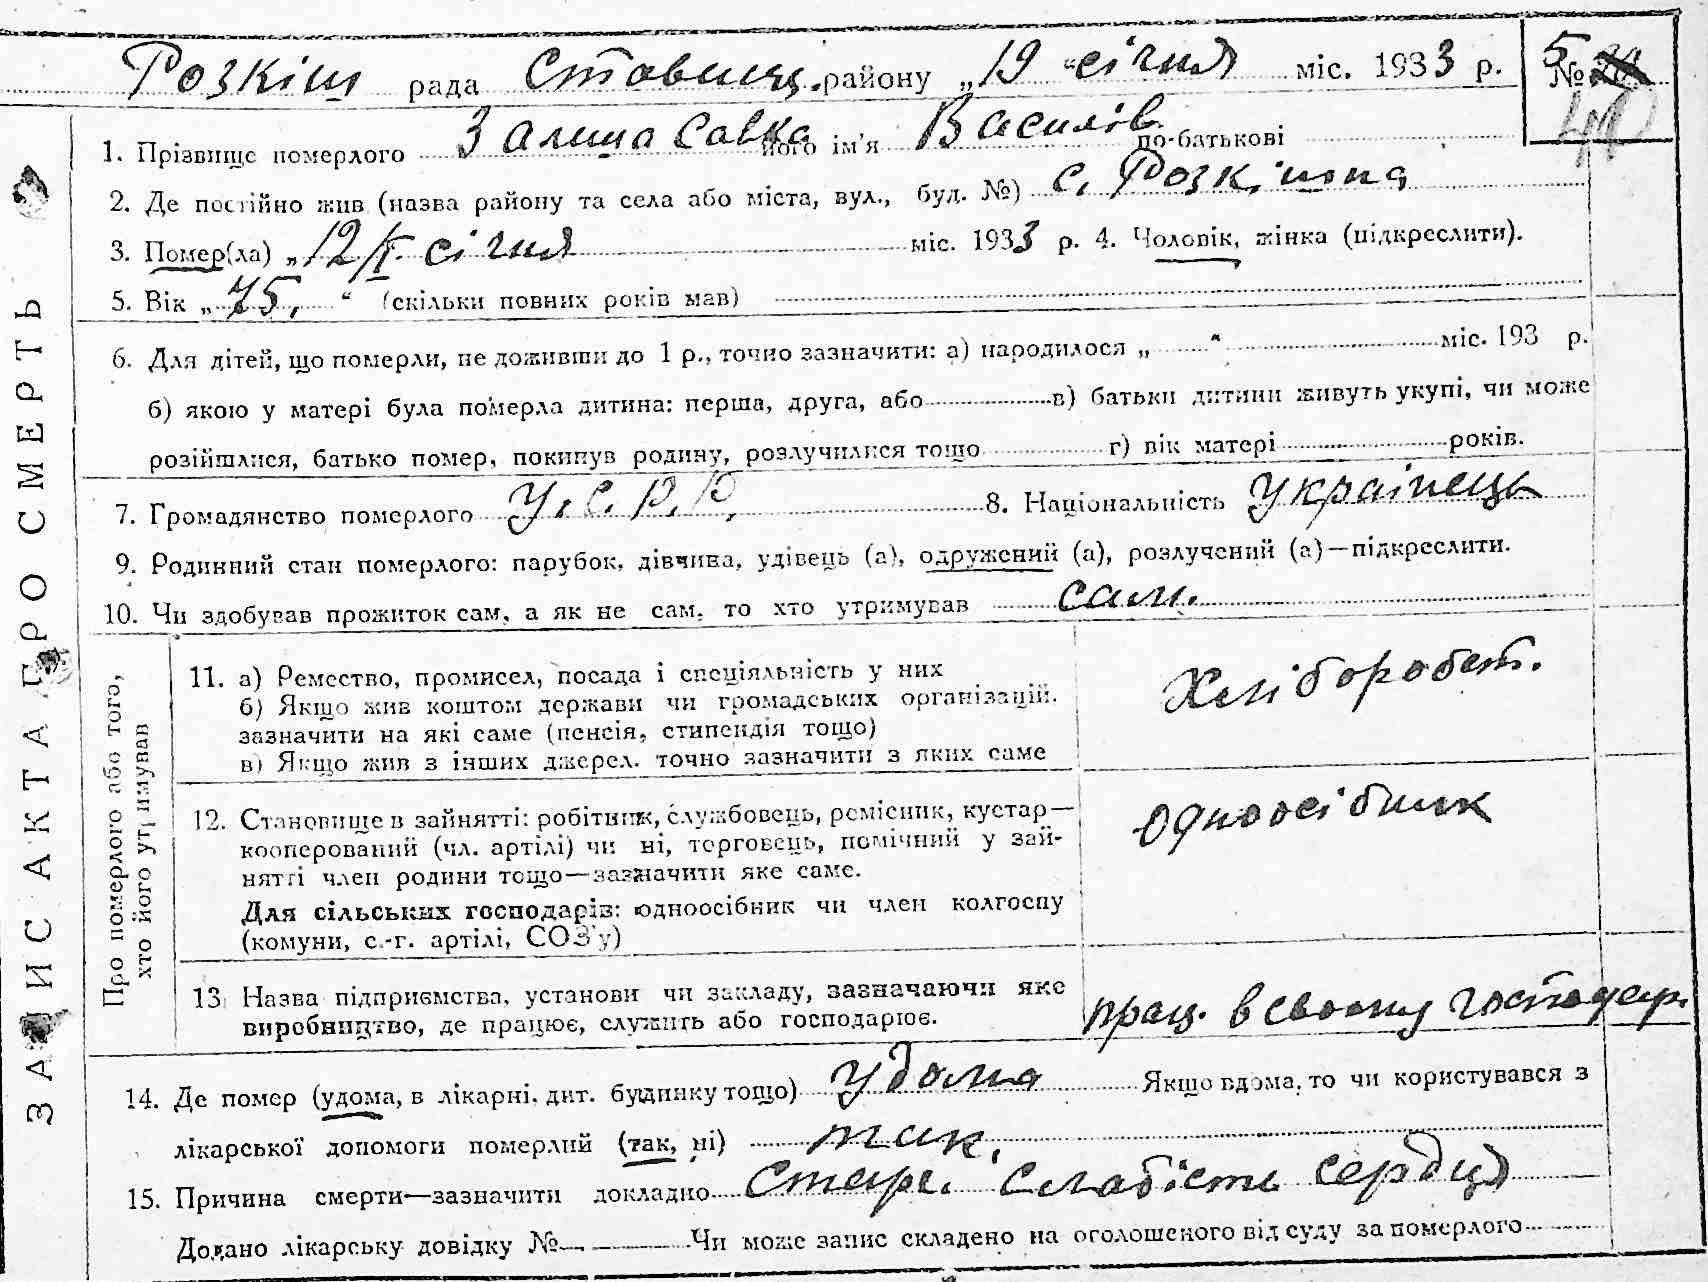 Розкіш рада Ставищ. району „19“ січня міс. 1933 р. № 5
ЗАПИС АКТА ПРО СМЕРТЬ
1. Прізвище померлого Залиша Савка його ім'я Василів по-батькові
2. Де постійно жив (назва району та села або міста, вул., буд. №) с. Розкішна
3. Помер(ла) „12/I. січня міс. 1933 р. 4. Чоловік, жінка (підкреслити).
5. Вік „75,“ (скільки повних років мав)
6. Для дітей, що померли, не доживши до 1 р., точно зазначити: а) народилося „ “ міс. 193 р.
б) якою у матері була померла дитина: перша, друга, або в) батьки дитини живуть укупі, чи може
розійшлися, батько помер, покинув родину, розлучилися тощо г) вік матері років.
7. Громадянство померлого У.С.Р.Р. 8. Національність українець
9. Родинний стан померлого: парубок, дівчина, удівець (а), одружений (а), розлучений (а)—підкреслити.
10. Чи здобував прожиток сам, а як не сам, то хто утримував сам.
Про померлого або того,
хто його утримував
11. а) Ремество, промисел, посада і спеціяльність у них
б) Якщо жив коштом держави чи громадських організацій,
зазначити на які саме (пенсія, стипендія тощо)
в) Якщо жив з інших джерел, точно зазначити з яких саме
Хлібороб ст.
12. Становище в зайнятті: робітник, службовець, ремісник, кустар—
кооперований (чл. артілі) чи ні, торговець, помічний у зай-
нятті член родини тощо—зазначити яке саме.
Для сільських господарів: одноосібник чи член колгоспу
(комуни, с.-г. артілі, СОЗ'у)
одноосібник
13. Назва підприємства, установи чи закладу, зазначаючи яке
виробництво, де працює, служить або господарює.
прац. в своєму господар.
14. Де помер (удома, в лікарні, дит. будинку тощо) удома Якщо вдома, то чи користувався з
лікарської допомоги померлий (так, ні) так,
15. Причина смерти—зазначити докладно стар. слабість сердця
Додано лікарську довідку № Чи може запис складено на оголошеного від суду за померлого